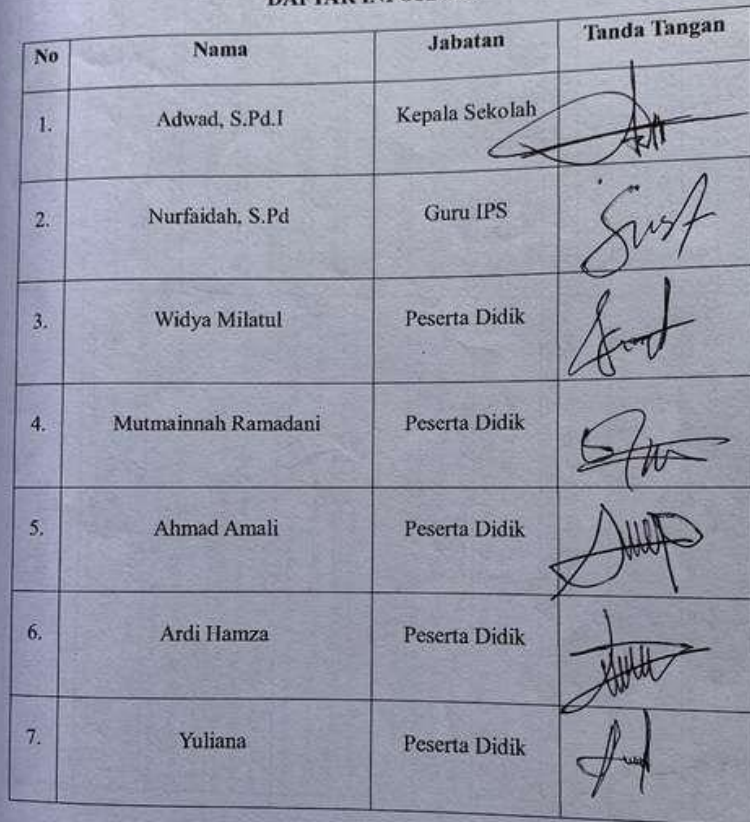 No Nama Jabatan Tanda Tangan
1. Adwad, S.Pd.I Kepala Sekolah
2. Nurfaidah, S.Pd Guru IPS
3. Widya Milatul Peserta Didik
4. Mutmainnah Ramadani Peserta Didik
5. Ahmad Amali Peserta Didik
6. Ardi Hamza Peserta Didik
7. Yuliana Peserta Didik